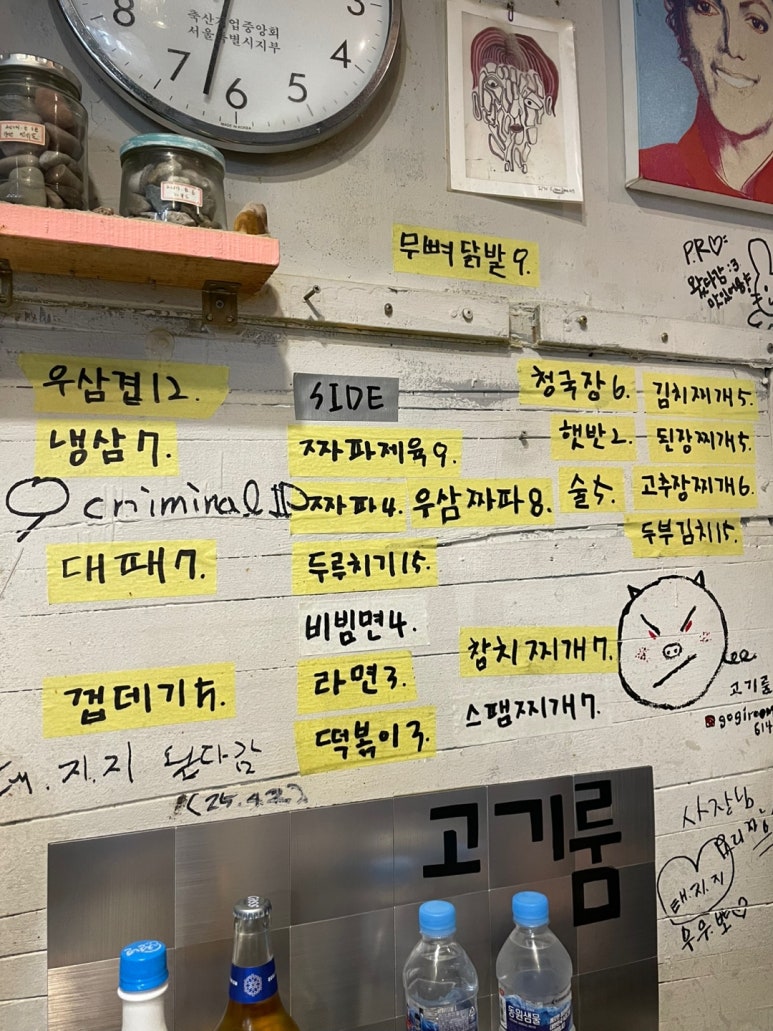 8
7
6
5
4
3
축산기업중앙회
서울특별시지부
MADE IN KOREA
무뼈닭발9.
P.R♡:
왔다감:3
우삼겹12.
냉삼7.
criminal
대패7.
껍데기5.
SIDE
짜파제육9.
짜파4.
우삼짜파8.
두루치기15.
비빔면4.
라면3.
떡볶이3.
청국장6.
햇반2.
술5.
김치찌개5.
된장찌개5.
고추장찌개6.
두부김치15.
참치찌개7.
스팸찌개7.
고기룸
gogiroom
614
태.지.지 왔다감
고기룸
사장님
태.지.지
동원샘물